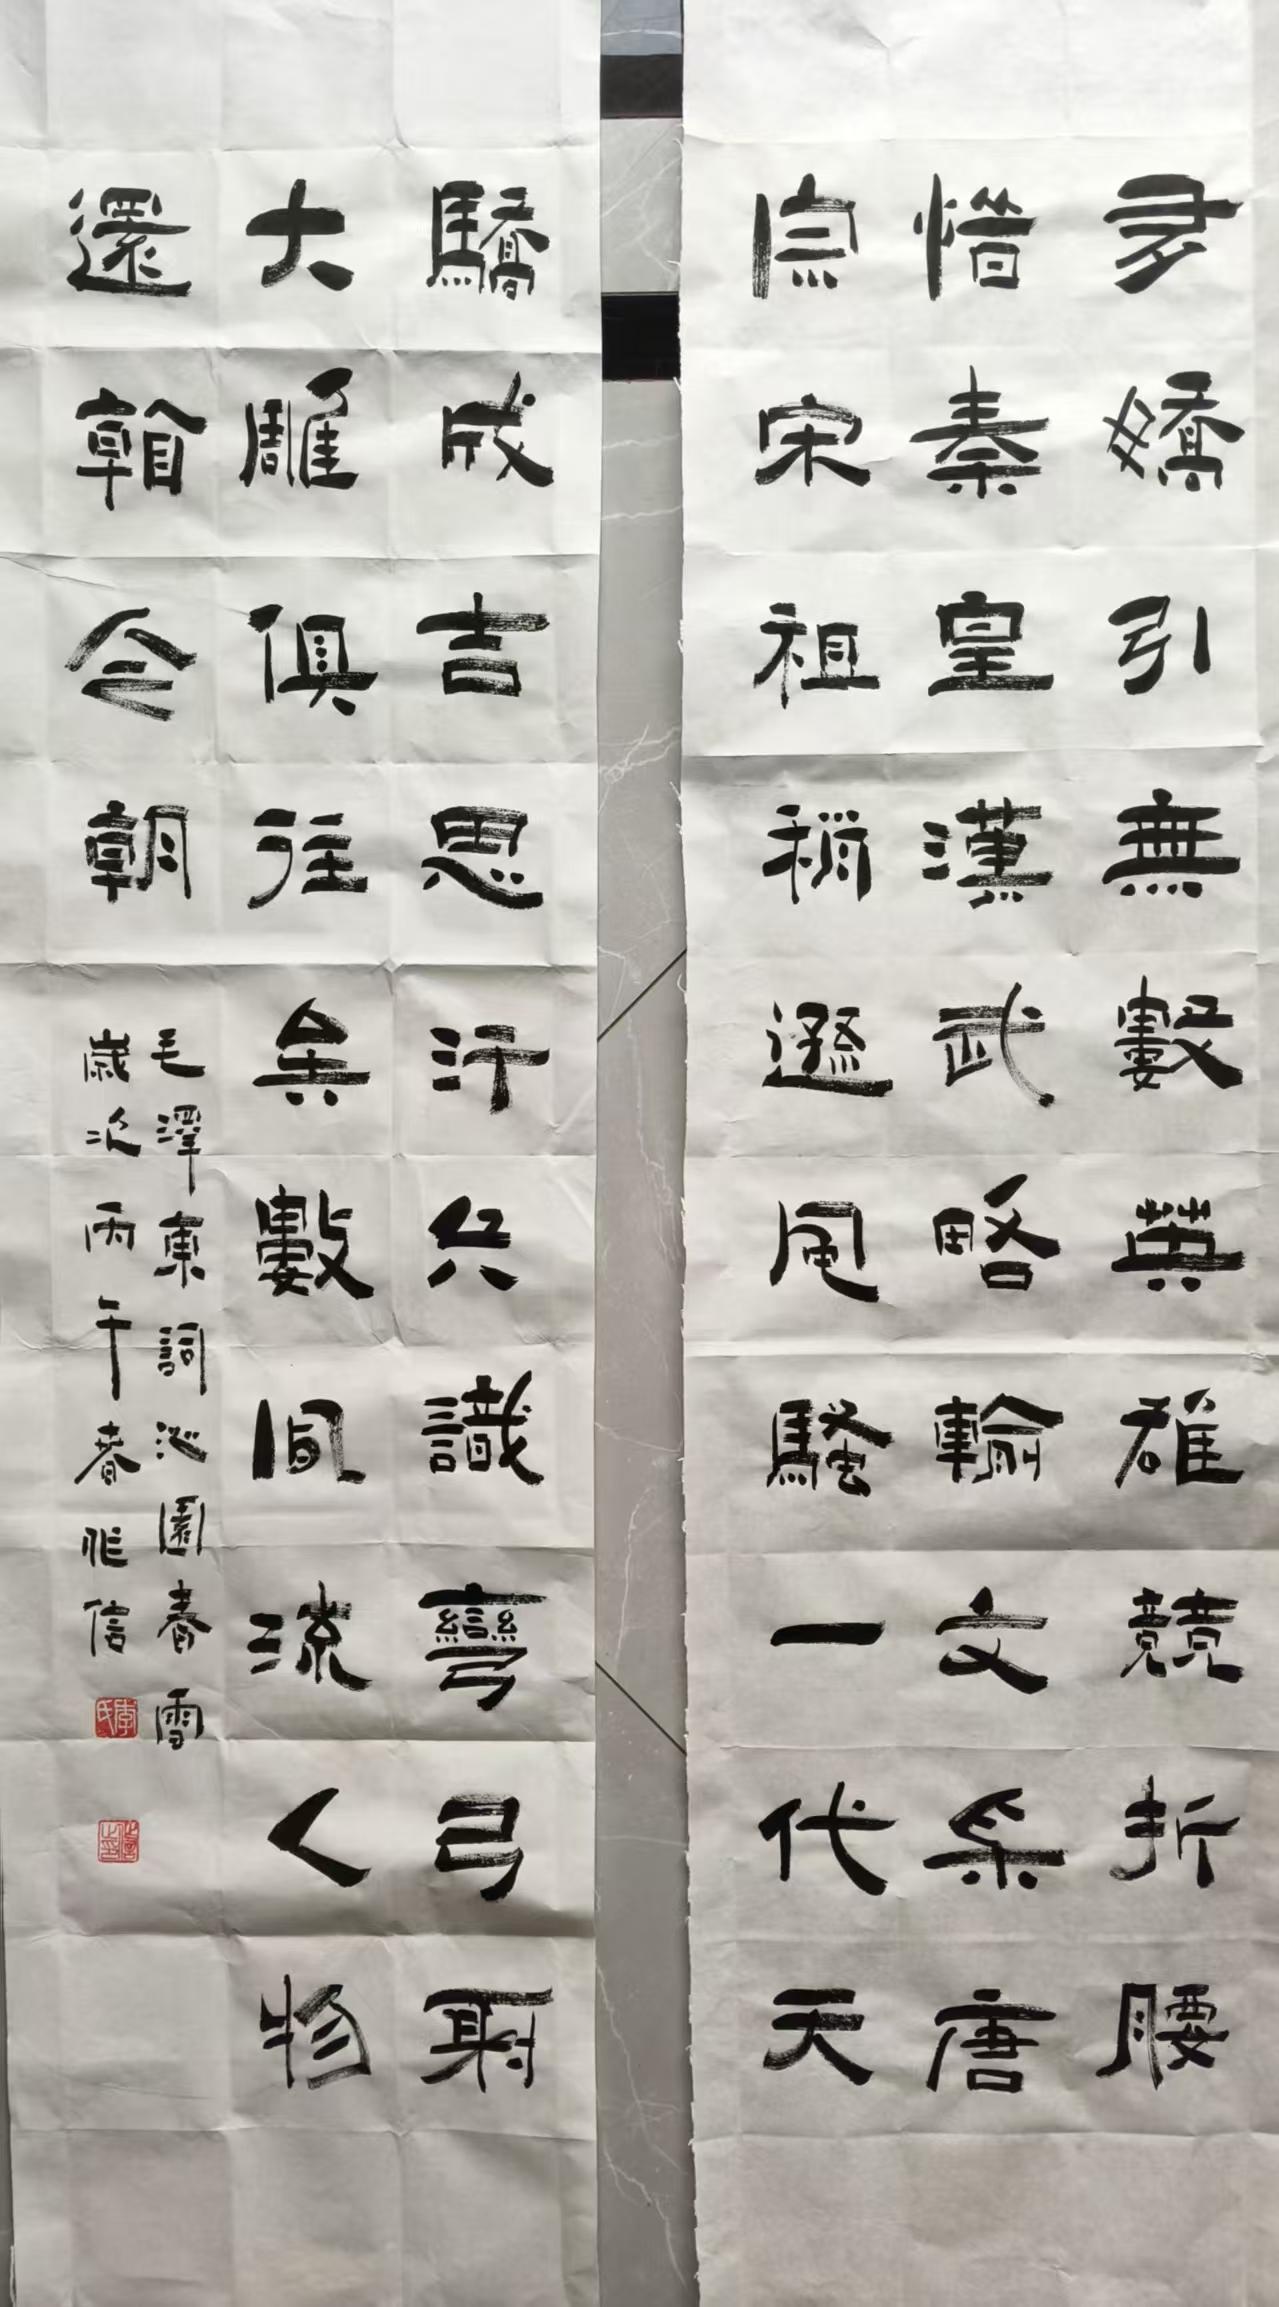 多嬌引無數英雄競折腰
惜秦皇漢武略輸文采唐
宗宋祖稍遜風騷一代天
驕成吉思汗只識彎弓射
大雕俱往矣數風流人物
還看今朝
毛澤東詞沁園春雪
歲次丙午春作信
李氏